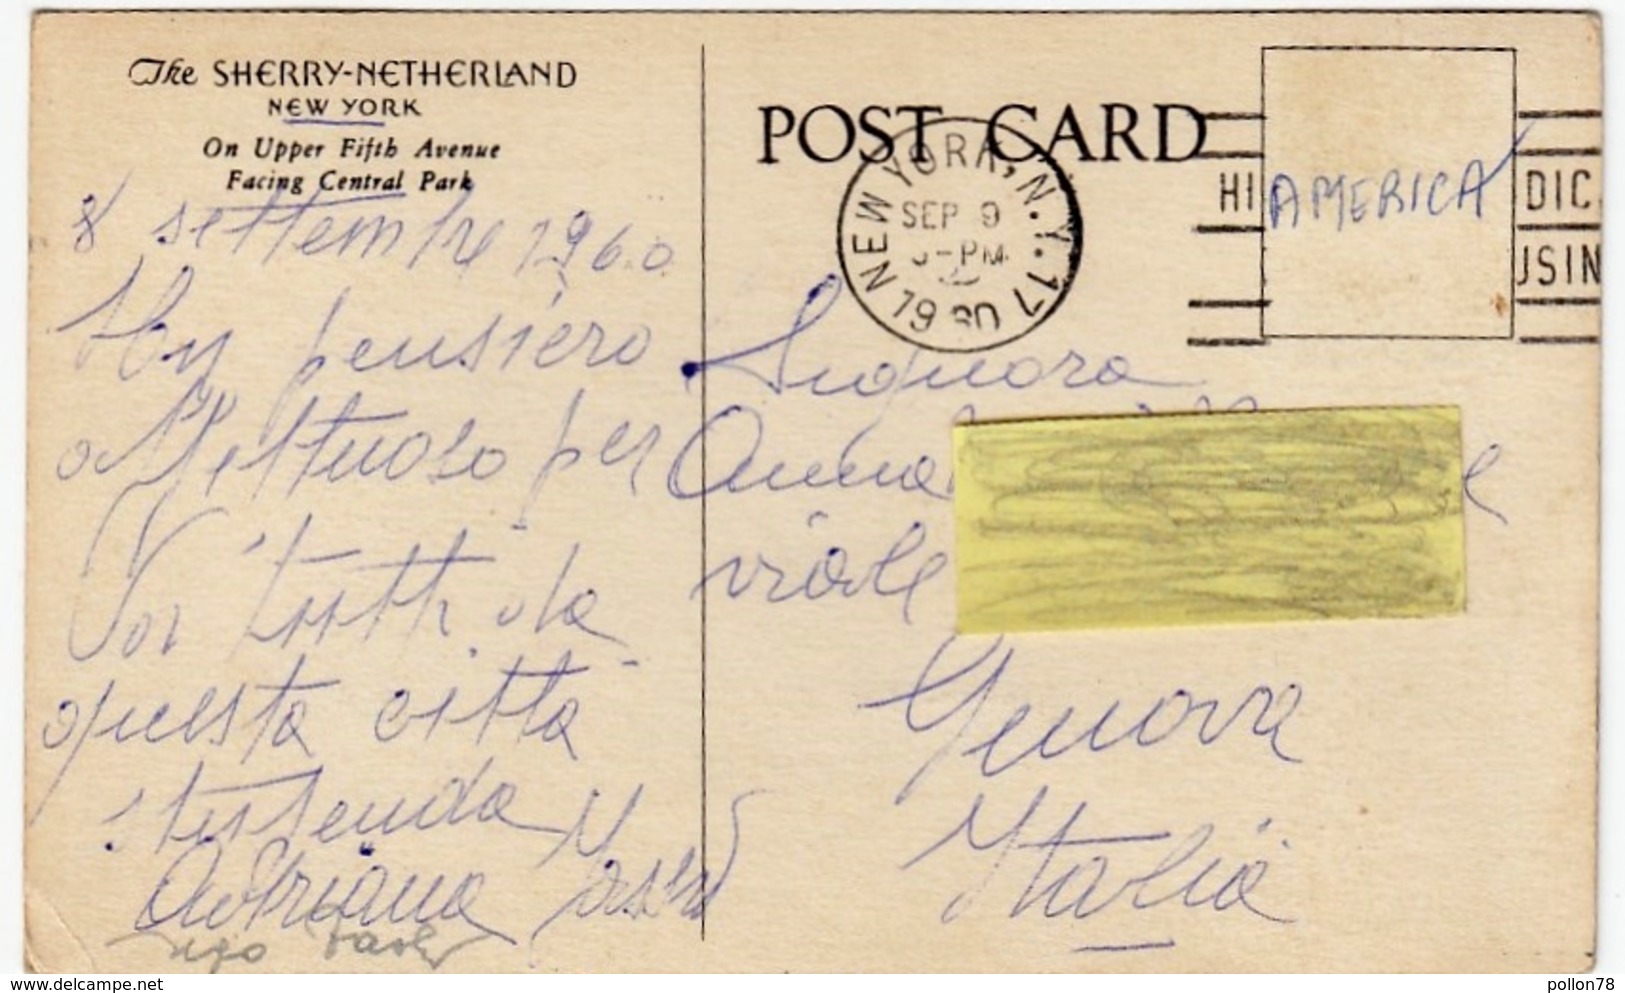 The SHERRY-NETHERLAND
NEW YORK
On Upper Fifth Avenue
Facing Central Park
8 settembre 1960
Un pensiero
affettuoso per
Voi tutti da
questa città
stupenda
Adriana
Ugo
POST CARD
NEW YORK, N.Y. 17
SEP 9
-PM
1960
HI
AMERICA
DIC
USIN
Signora
Anna
viale
Genova
Italia
delcampe.net
pollon78